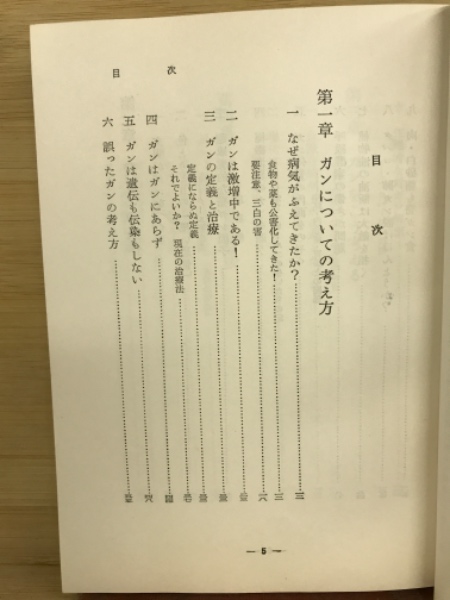 目次
目次
第一章 ガンについての考え方
一 なぜ病気がふえてきたか？
食物や薬も公害化してきた！
要注意、三白の害
二 ガンは激増中である！
三 ガンの定義と治療
定義にならぬ定義
それでよいか？ 現在の治療法
四 ガンはガンにあらず
五 ガンは遺伝も伝染もしない
六 誤ったガンの考え方
— 5 —